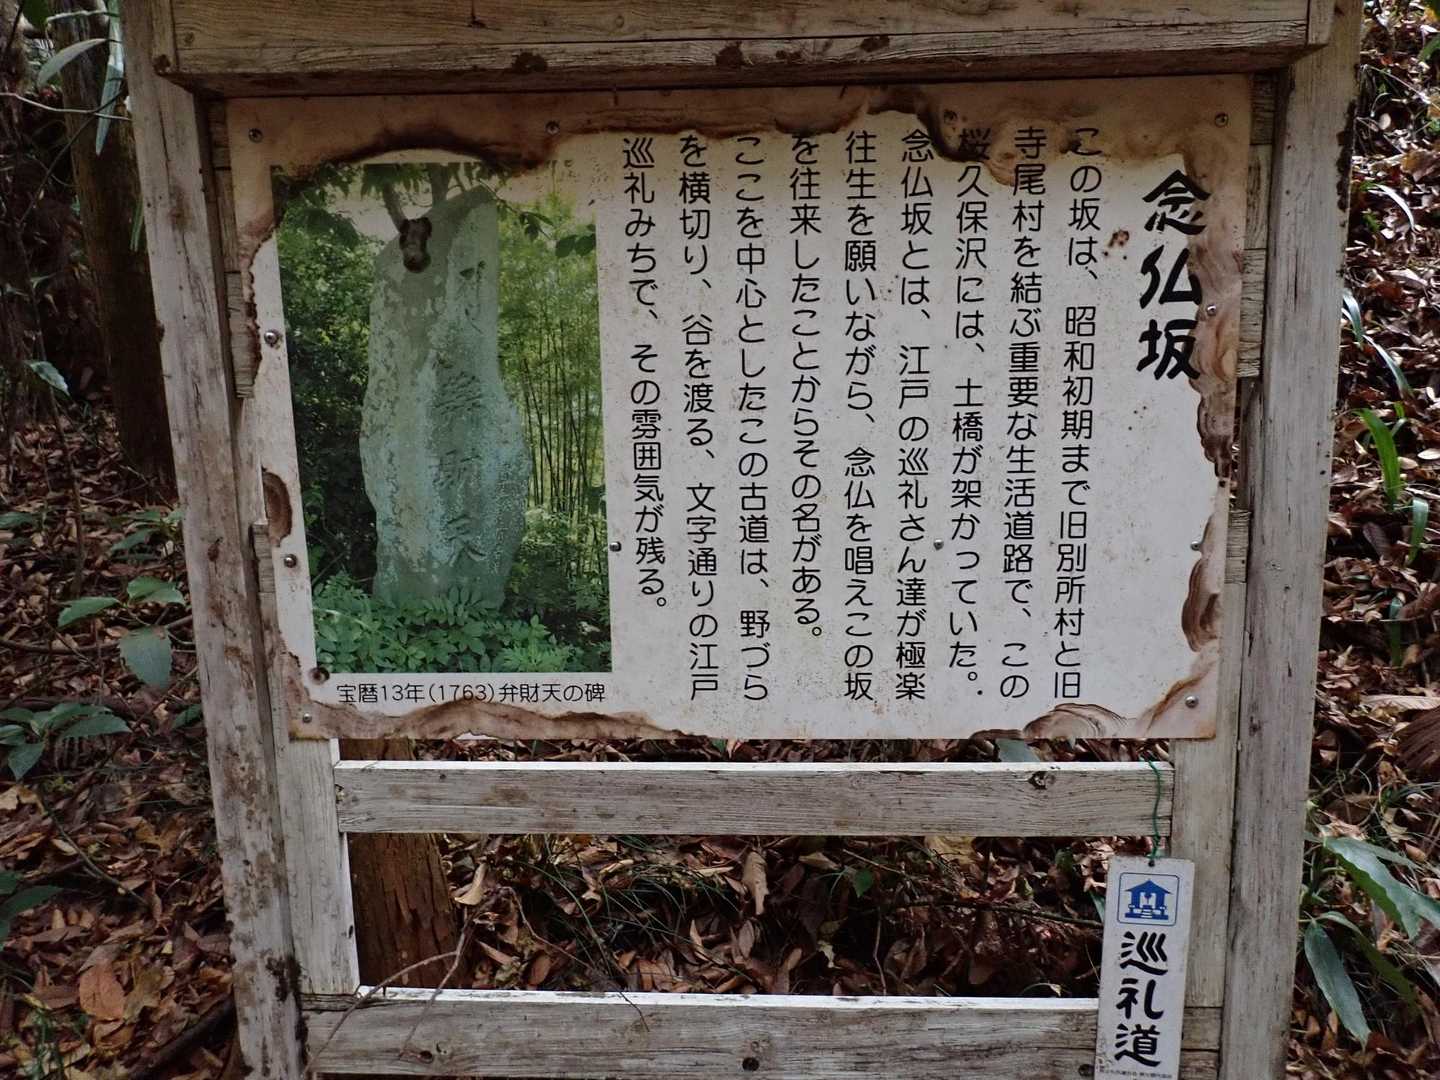 念仏坂
この坂は、昭和初期まで旧別所村と旧
寺尾村を結ぶ重要な生活道路で、この
桜久保沢には、土橋が架かっていた。
念仏坂とは、江戸の巡礼さん達が極楽
往生を願いながら、念仏を唱えこの坂
を往来したことからその名がある。
ここを中心としたこの古道は、野づら
を横切り、谷を渡る、文字通りの江戸
巡礼みちで、その雰囲気が残る。
宝暦13年(1763)弁財天の碑
巡礼道